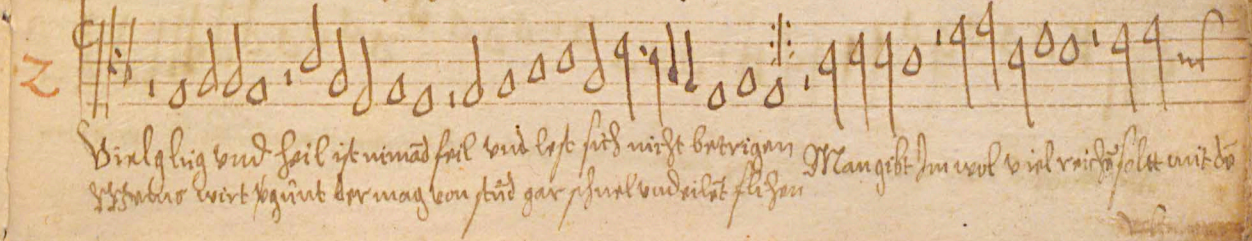 2
Viel glüg vnd heil ist nimād feil vnd lest sich nicht betrigen Man gibt Im wol viel reichē solt mit
wirt der mag von stūd gar schnel vnd eilēt flihen